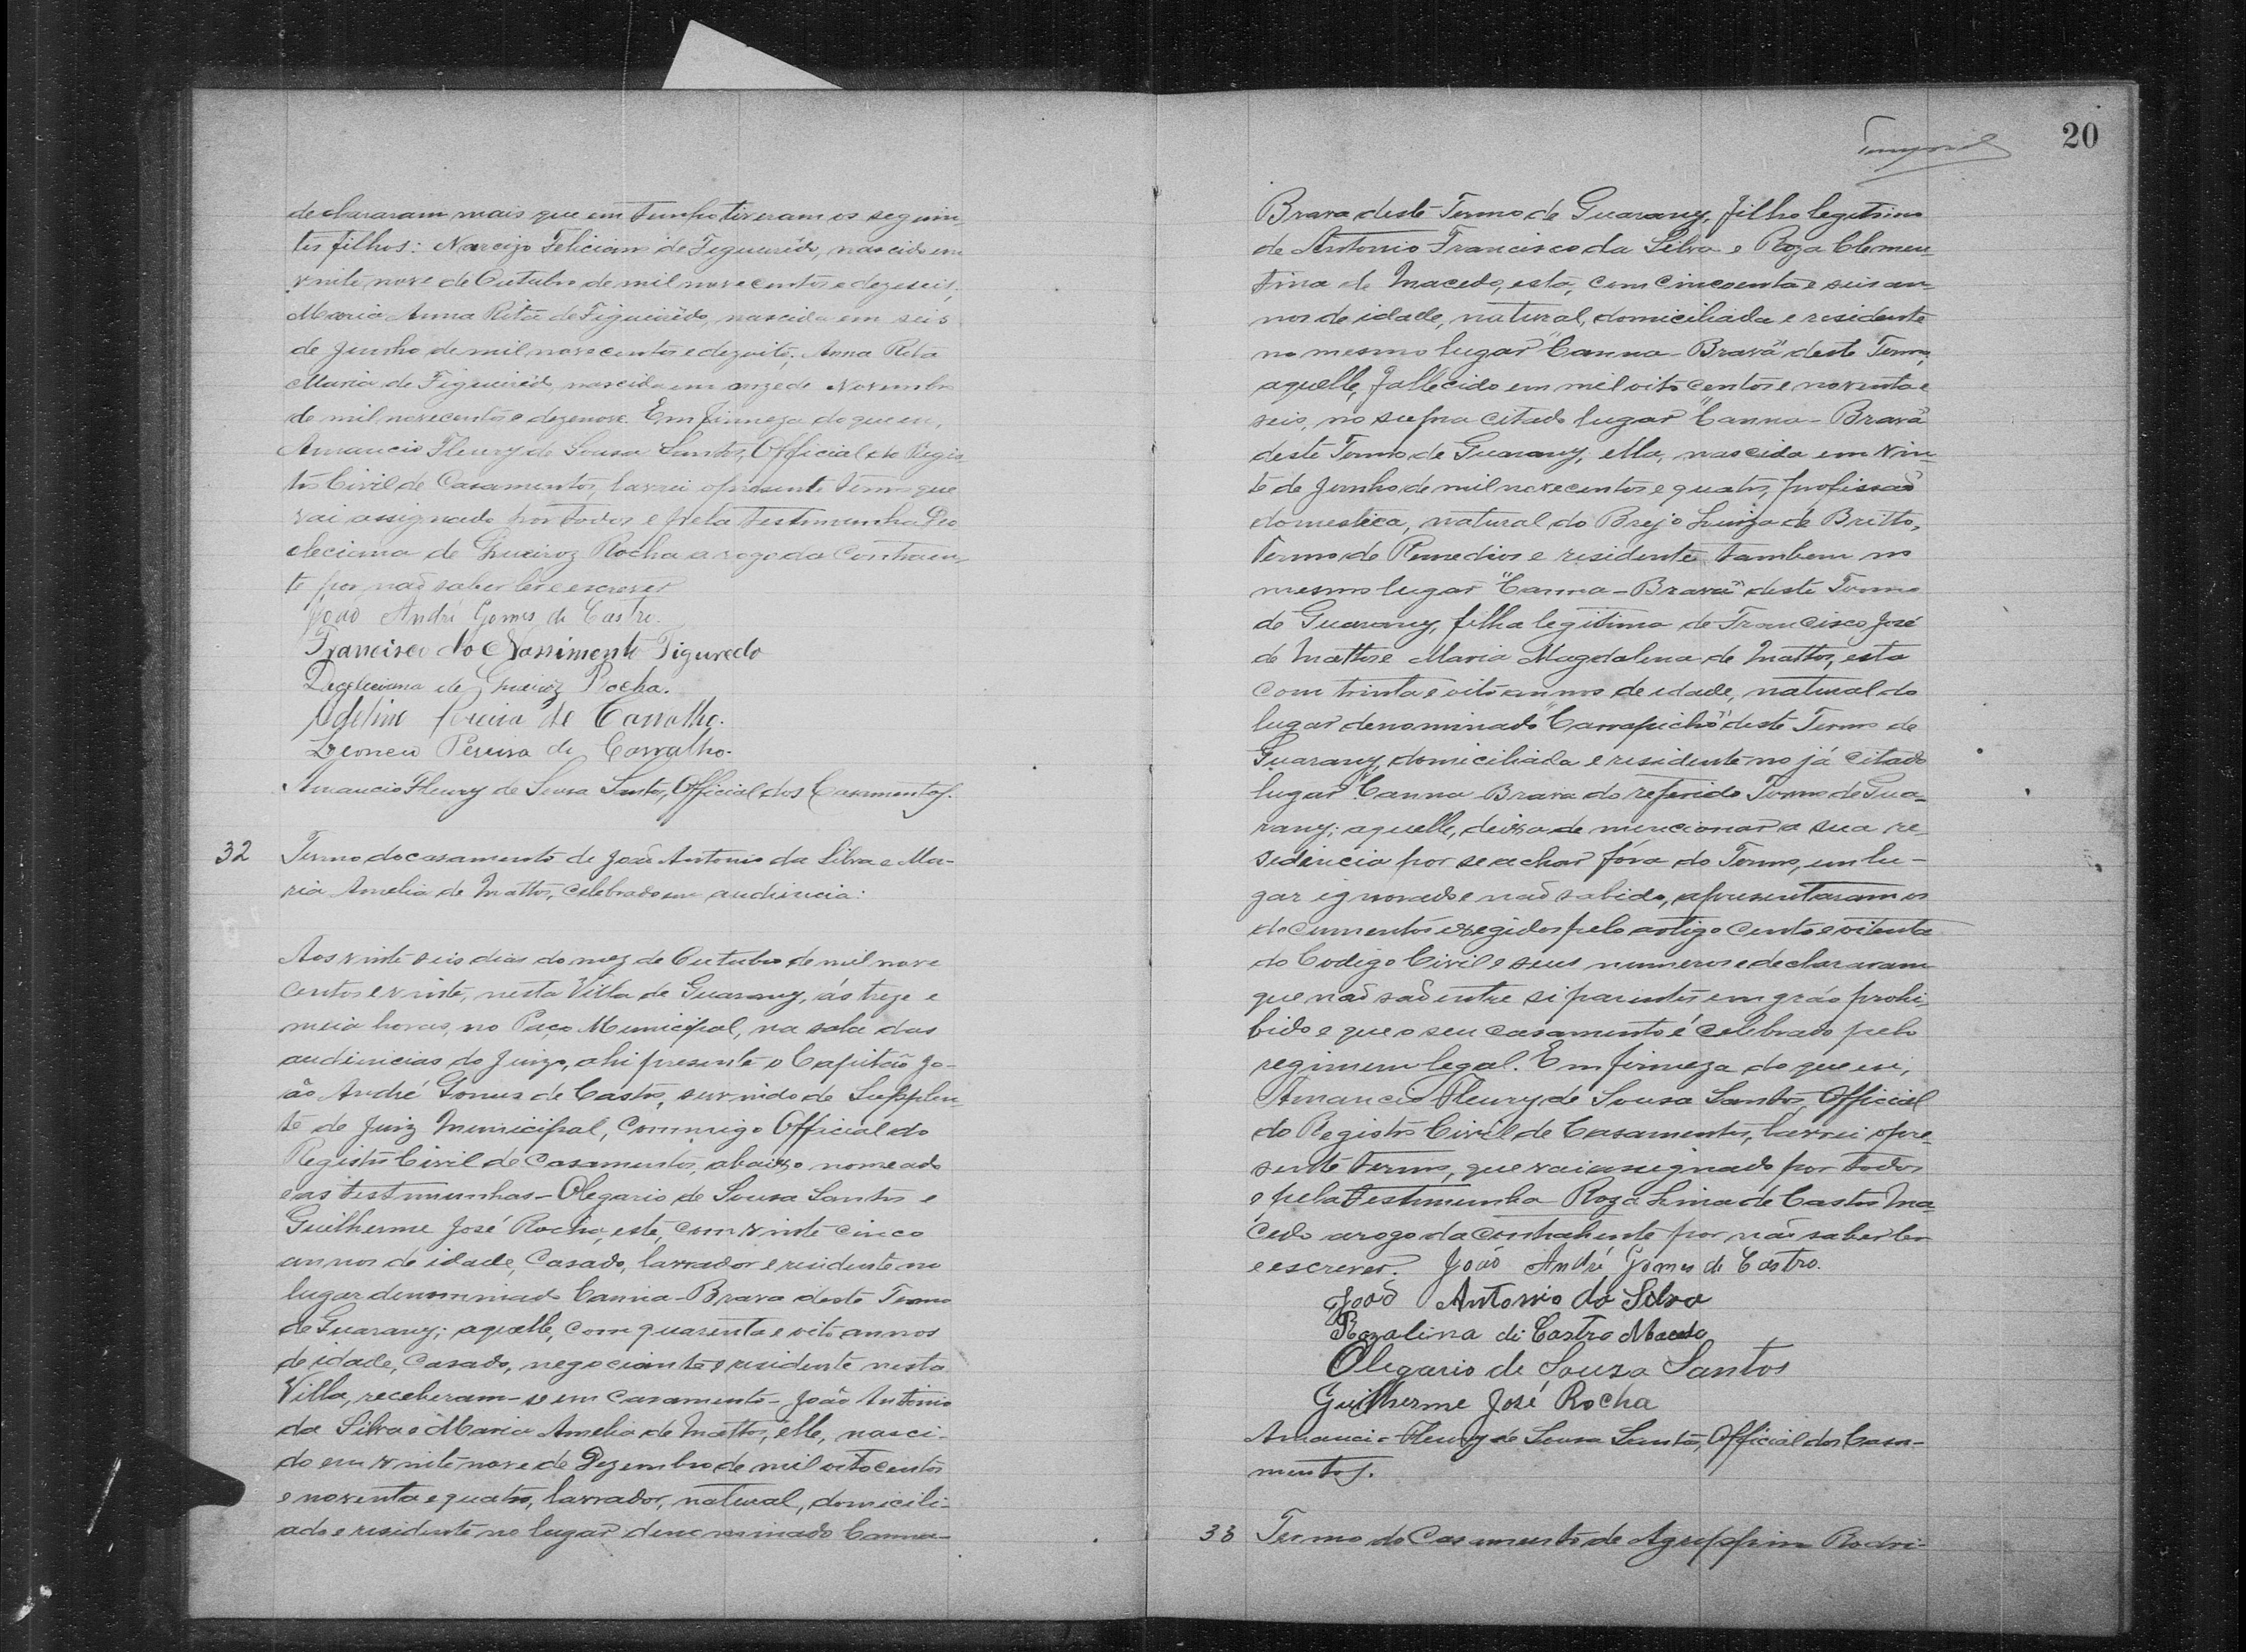 declararam mais que em tempo tiveram os seguin-
tes filhos: Narcizo Feliciano de Figueirêdo, nascido em
vinte nove de Outubro de mil nove centos e dezeseis,
Maria Anna Rita de Figueirêdo, nascida em seis
de Junho de mil nove centos e dezoito; Anna Rita
Maria de Figueirêdo, nascida em onze de Novembro
de mil novecentos e dezenove. Em firmeza do que eu,
Amancio Fleury de Sousa Santos, Official do Regis-
tro Civil de Casamentos, lavrei o presente termo que
vai assignado por todos e pela testimunha Deo
cleciana de Queiroz Rocha a rogo da contraen-
te por naõ saber ler e escrever
Joaõ André Gomes de Castro.
Francisco do Nassimento Figuredo
Deocleciana de Queiróz Rocha.
Adelino Pereira de Carvalho.
Leoncio Pereira de Carvalho.
Amancio Fleury de Sousa Santos, Official dos Casamentos.
32 Termo do casamento de João Antonio da Silva e Ma-
ria Amelia de Mattos, celebrado em audiencia:
Aos vinte seis dias do mez de Outubro de mil nove
centos e vinte, nesta Villa de Guarany, ás treze e
meia horas, no Paço Municipal, na sala das
audiencias do Juizo, ahi presente o Capitaõ Jo-
ão André Gomes de Castro, servindo de Supplen-
te de Juiz Municipal, commigo Official do
Registro Civil de Casamentos, abaixo nomeado
e as testimunhas - Olegario de Sousa Santos e
Guilherme José Rocha, este, com vinte cinco
annos de idade, casado, lavrador e residente no
lugar denominado Canna-Brava deste Termo
de Guarany; aquelle, com quarenta e oito annos
de idade, casado, negociante e residente nesta
Villa, receberam-se em casamento - João Antonio
da Silva e Maria Amelia de Mattos, elle, nasci-
do em vinte nove de Dezembro de mil oito centos
e noventa e quatro, lavrador, natural, domicili-
ado e residente no lugar denominado Canna-
20
Brava deste Termo de Guarany, filho legitimo
de Antonio Francisco da Silva e Roza Clemen-
tina de Macedo, esta, com cincoenta e seis an-
nos de idade, natural, domiciliada e residente
no mesmo lugar "Canna-Brava" deste Termo,
aquelle, fallecido em mil oito centos e noventa e
seis, no supra citado lugar "Canna-Brava"
deste Termo de Guarany; ella, nascida em vin-
te de Junho de mil novecentos e quatro, profissaõ
domestica, natural do Brejo Luiza de Britto,
Termo de Remedios e residente tambem no
mesmo lugar "Canna-Brava" deste Termo
de Guarany, filha legitima de Francisco José
de Mattos e Maria Magdalena de Mattos, esta
com trinta e oito annos de idade, natural do
lugar denominado "Carrapicho" deste Termo de
Guarany, domiciliada e residente no já citado
lugar "Canna Brava do referido Termo de Gua-
rany; aquelle, deixa de mencionar a sua re-
sidencia por se achar fóra do Termo, em lu-
gar ignorado e naõ sabido, apresentaram os
documentos exegidos pelo artigo cento e oitenta
do Codigo Civil e seus numeros e declararam
que naõ saõ entre si parentes em gráo prohi-
bido e que o seu casamento é celebrado pelo
regimem legal. Em firmeza do que eu,
Amancio Fleury de Sousa Santos, Official
do Registro Civil de Casamentos, lavrei o pre-
sente termo, que vai assignado por todos
e pela testimunha Roza Lina de Castro Ma-
cedo a rogo da contrahente por não saber ler
e escrever. Joaõ André Gomes de Castro.
Joaõ Antonio da Silva
Rozalina de Castro Macedo
Olegario de Souza Santos
Guilherme José Rocha
Amancio Fleury de Sousa Santos, Official dos Casa-
mentos.
33 Termo do Casamento de Agrippim Rodri-